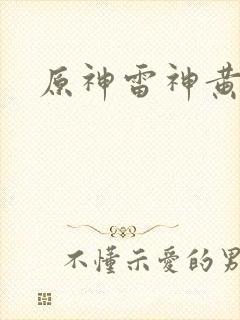 原神雷神黄
不懂示愛的男